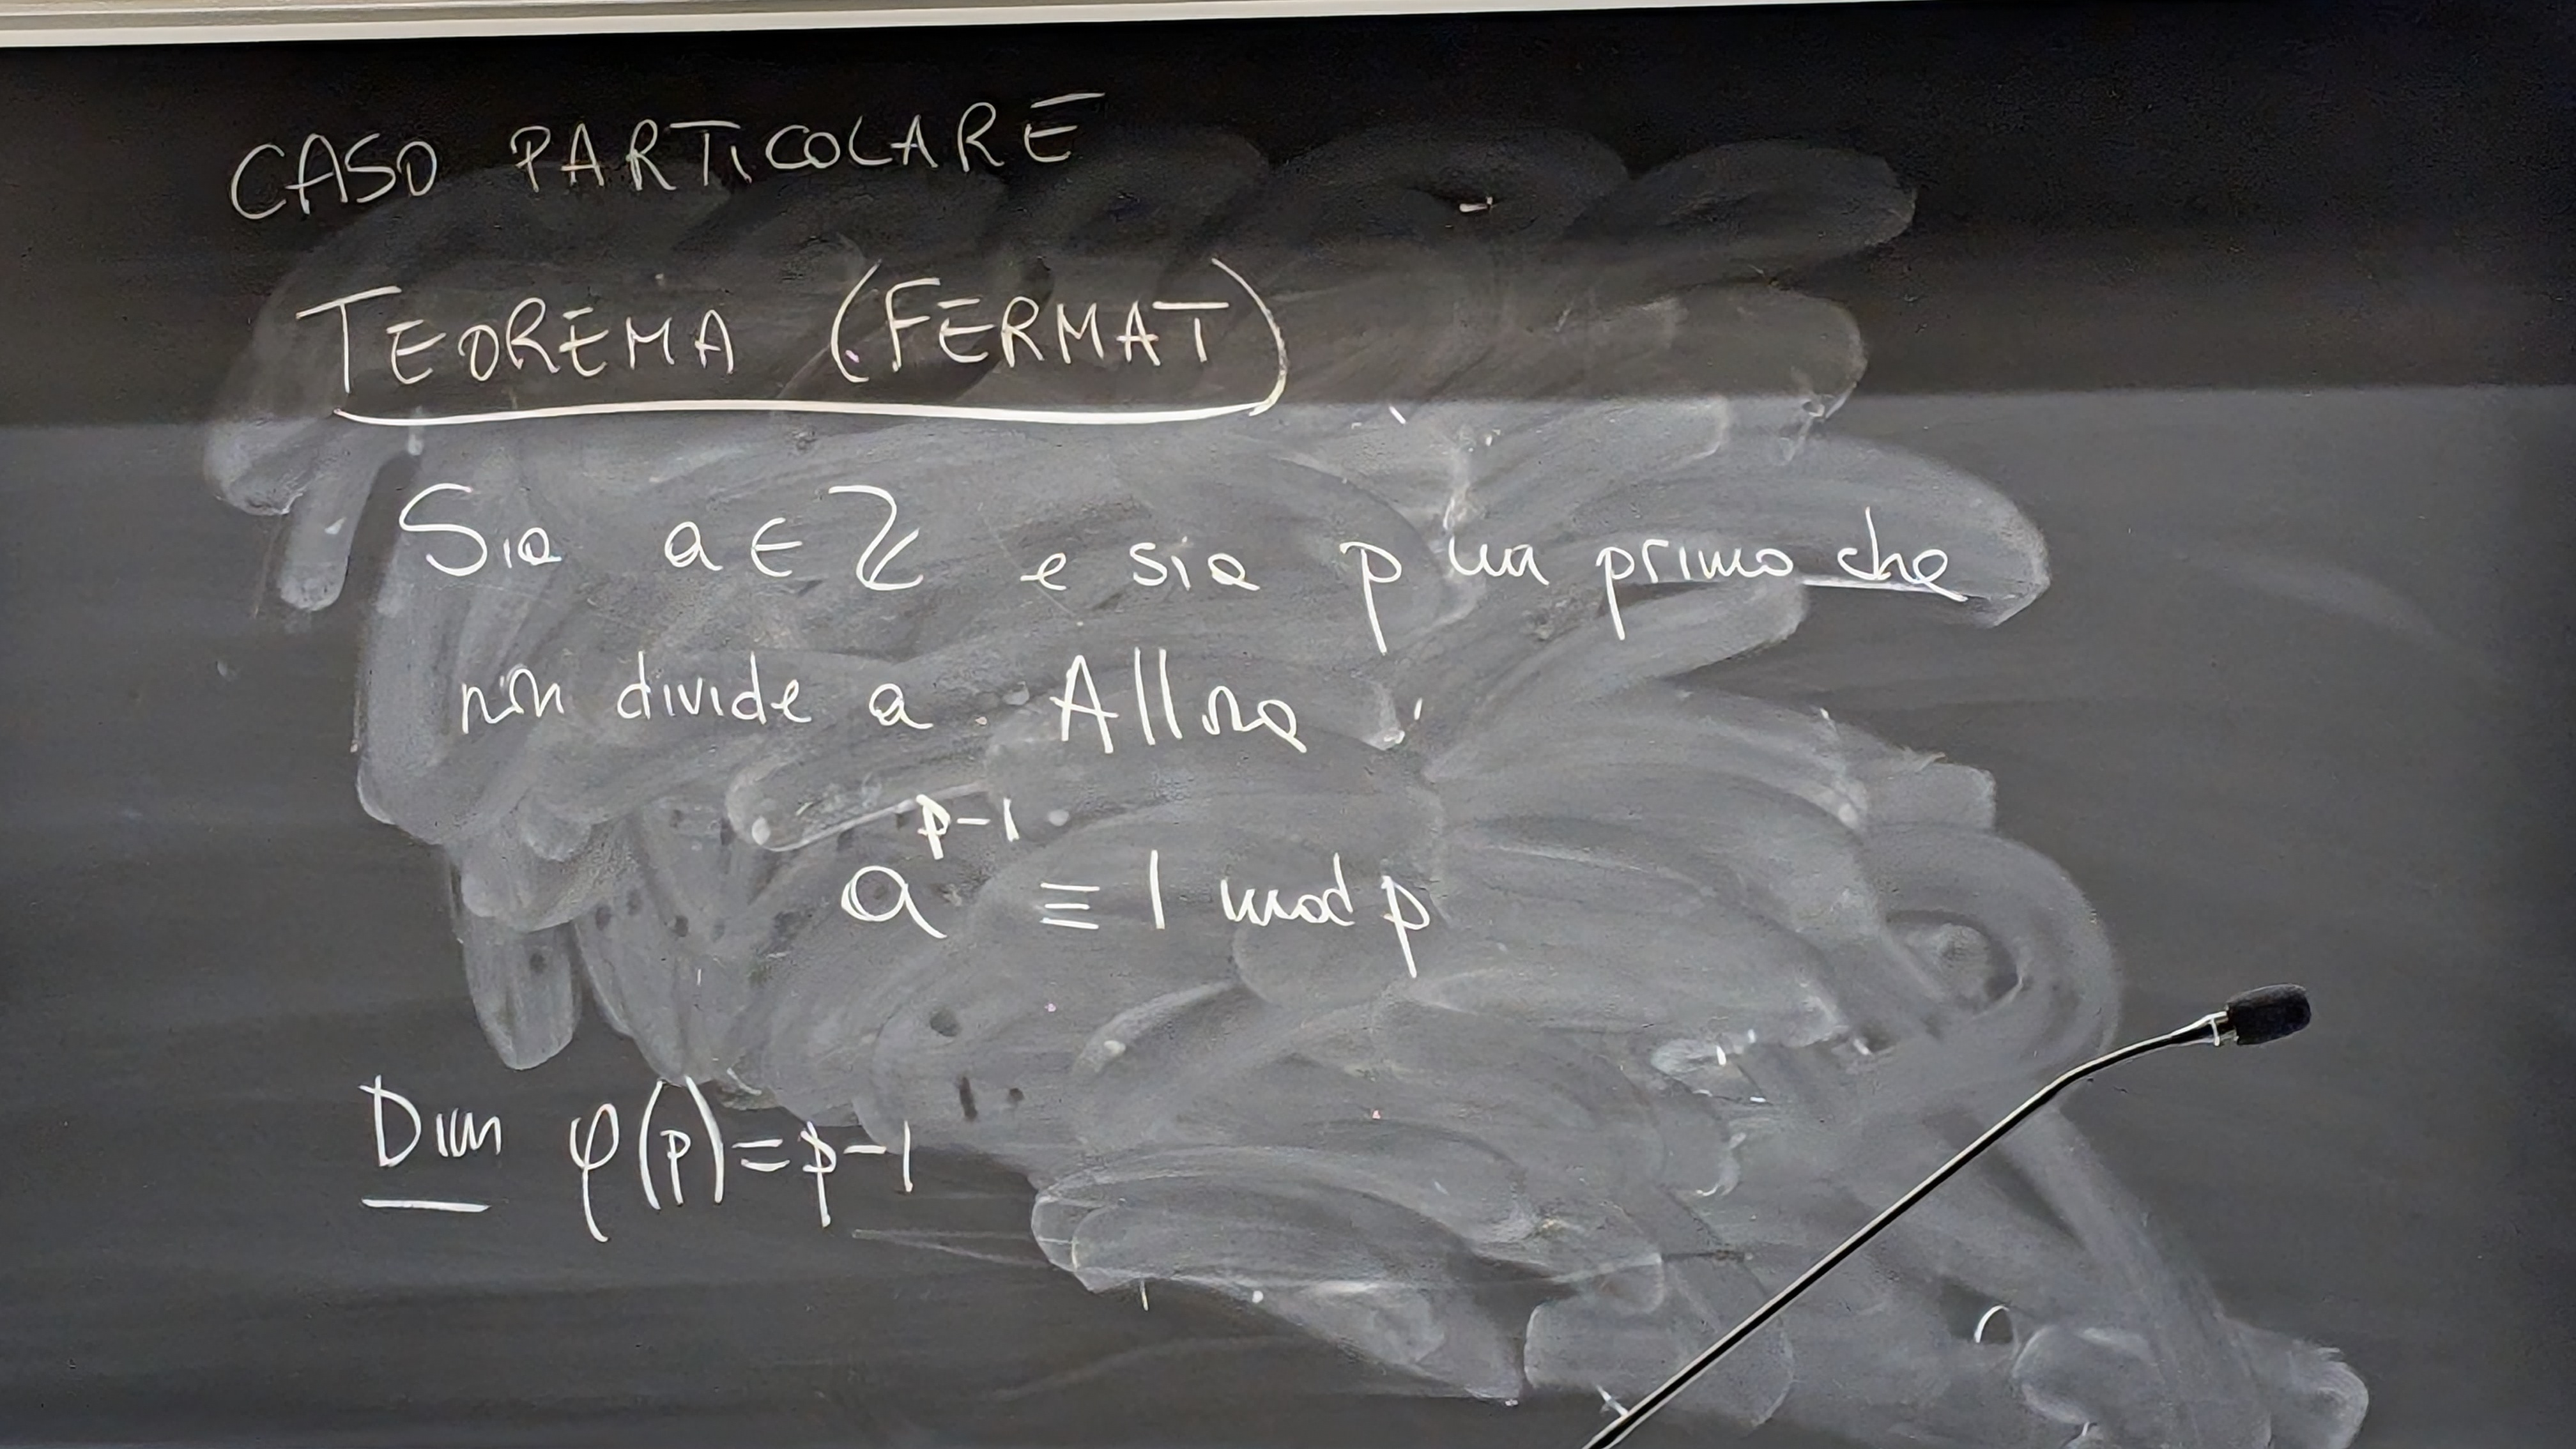 CASO PARTICOLARE
TEOREMA (FERMAT)
Sia a ∈ ℤ e sia p un primo che
non divide a. Allora
a^{p-1} ≡ 1 mod p
Dim φ(p) = p-1